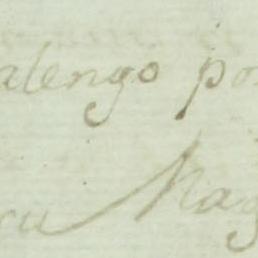 alengo po
su Mag